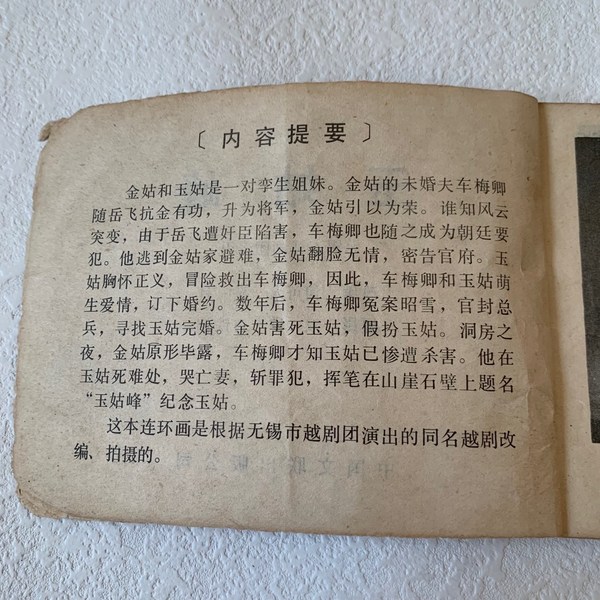 〔内容提要〕
金姑和玉姑是一对孪生姐妹。金姑的未婚夫车梅卿
随岳飞抗金有功，升为将军，金姑引以为荣。谁知风云
突变，由于岳飞遭奸臣陷害，车梅卿也随之成为朝廷要
犯。他逃到金姑家避难，金姑翻脸无情，密告官府。玉
姑胸怀正义，冒险救出车梅卿，因此，车梅卿和玉姑萌
生爱情，订下婚约。数年后，车梅卿冤案昭雪，官封总
兵，寻找玉姑完婚。金姑害死玉姑，假扮玉姑。洞房之
夜，金姑原形毕露，车梅卿才知玉姑已惨遭杀害。他在
玉姑死难处，哭亡妻，斩罪犯，挥笔在山崖石壁上题名
“玉姑峰”纪念玉姑。
这本连环画是根据无锡市越剧团演出的同名越剧改
编、拍摄的。